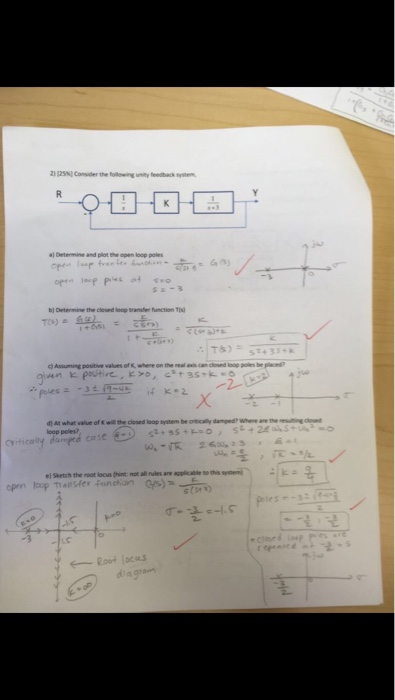 2) [25%] Consider the following unity feedback system.
R
1
s
K
1
s+3
Y
a) Determine and plot the open loop poles
open loop transfer function = K / s(s+3) = G(s)
open loop poles at s=0
s=-3
jω
σ
-3
0
b) Determine the closed loop transfer function T(s)
T(s) = G(s) / 1+G(s) = K / s(s+3) / 1 + K / s(s+3) = K / s(s+3)+K
∴ T(s) = K / s²+3s+K
c) Assuming positive values of K, where on the real axis can closed loop poles be placed?
given K positive, K>0, s²+3s+K=0
-2
K=2
∴ poles = -3±√9-4K / 2 if K=2
jω
-2
-1
σ
d) At what value of K will the closed loop system be critically damped? Where are the resulting closed
loop poles?
critically damped case
s²+3s+K=0, s²+2ξωₙs+ωₙ²=0
ωₙ=√K
2ξωₙ=3, ξ=1
ωₙ=3/2, √K=3/2
∴ K=9/4
e) Sketch the root locus (hint: not all rules are applicable to this system)
open loop transfer function G(s) = K / s(s+3)
σ = -3/2 = -1.5
K=0
-3
-1.5
K=0
0
← Root locus
diagram
K=∞
= -3/2, -3/2
closed loop poles are
repeated at
jω
σ
-3/2